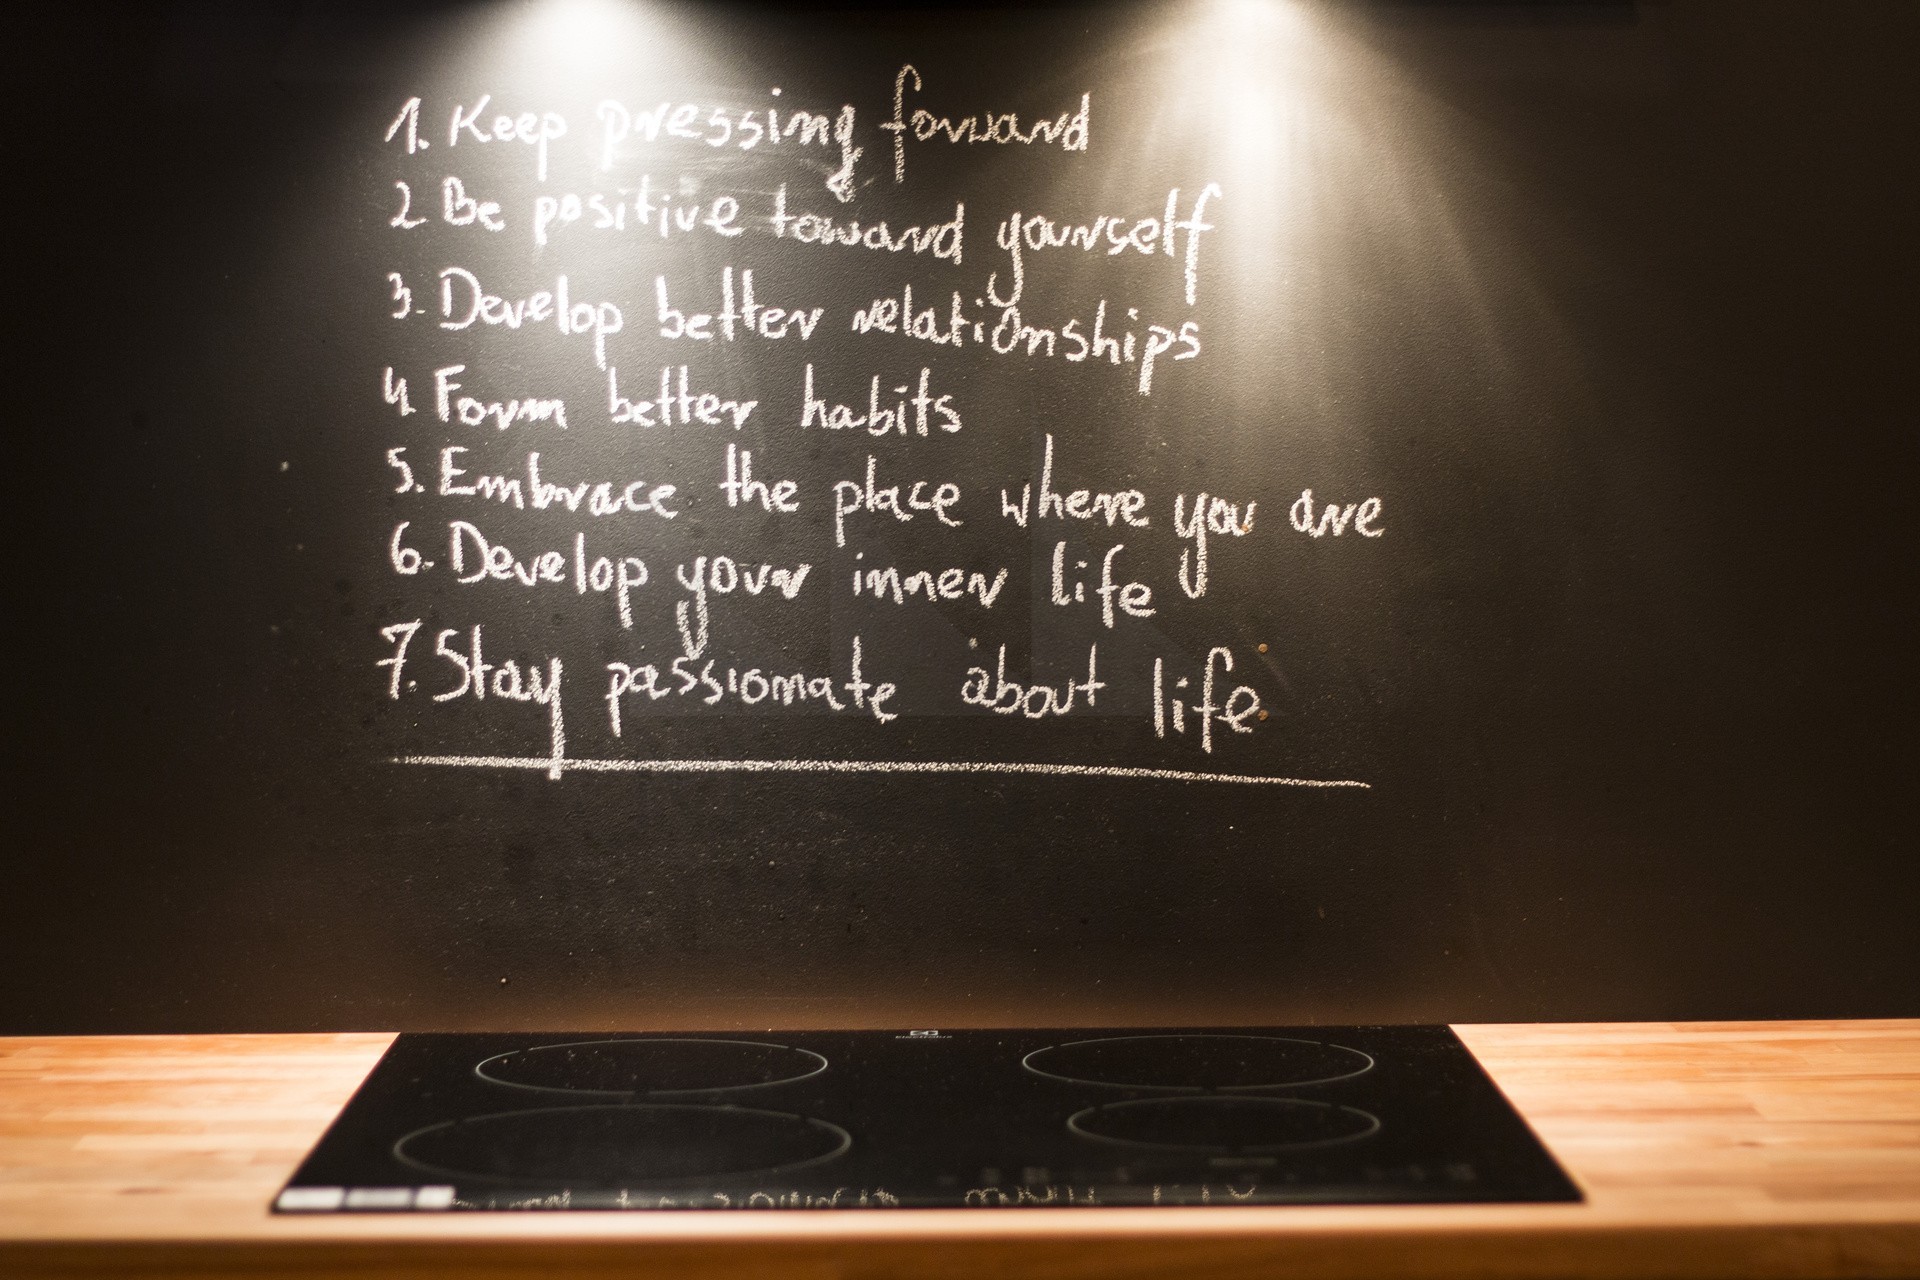 1. Keep pressing forward
2 Be positive toward yourself
3. Develop better relationships
4. Form better habits
5. Embrace the place where you are
6. Develop your inner life
7. Stay passionate about life.
Electrolux